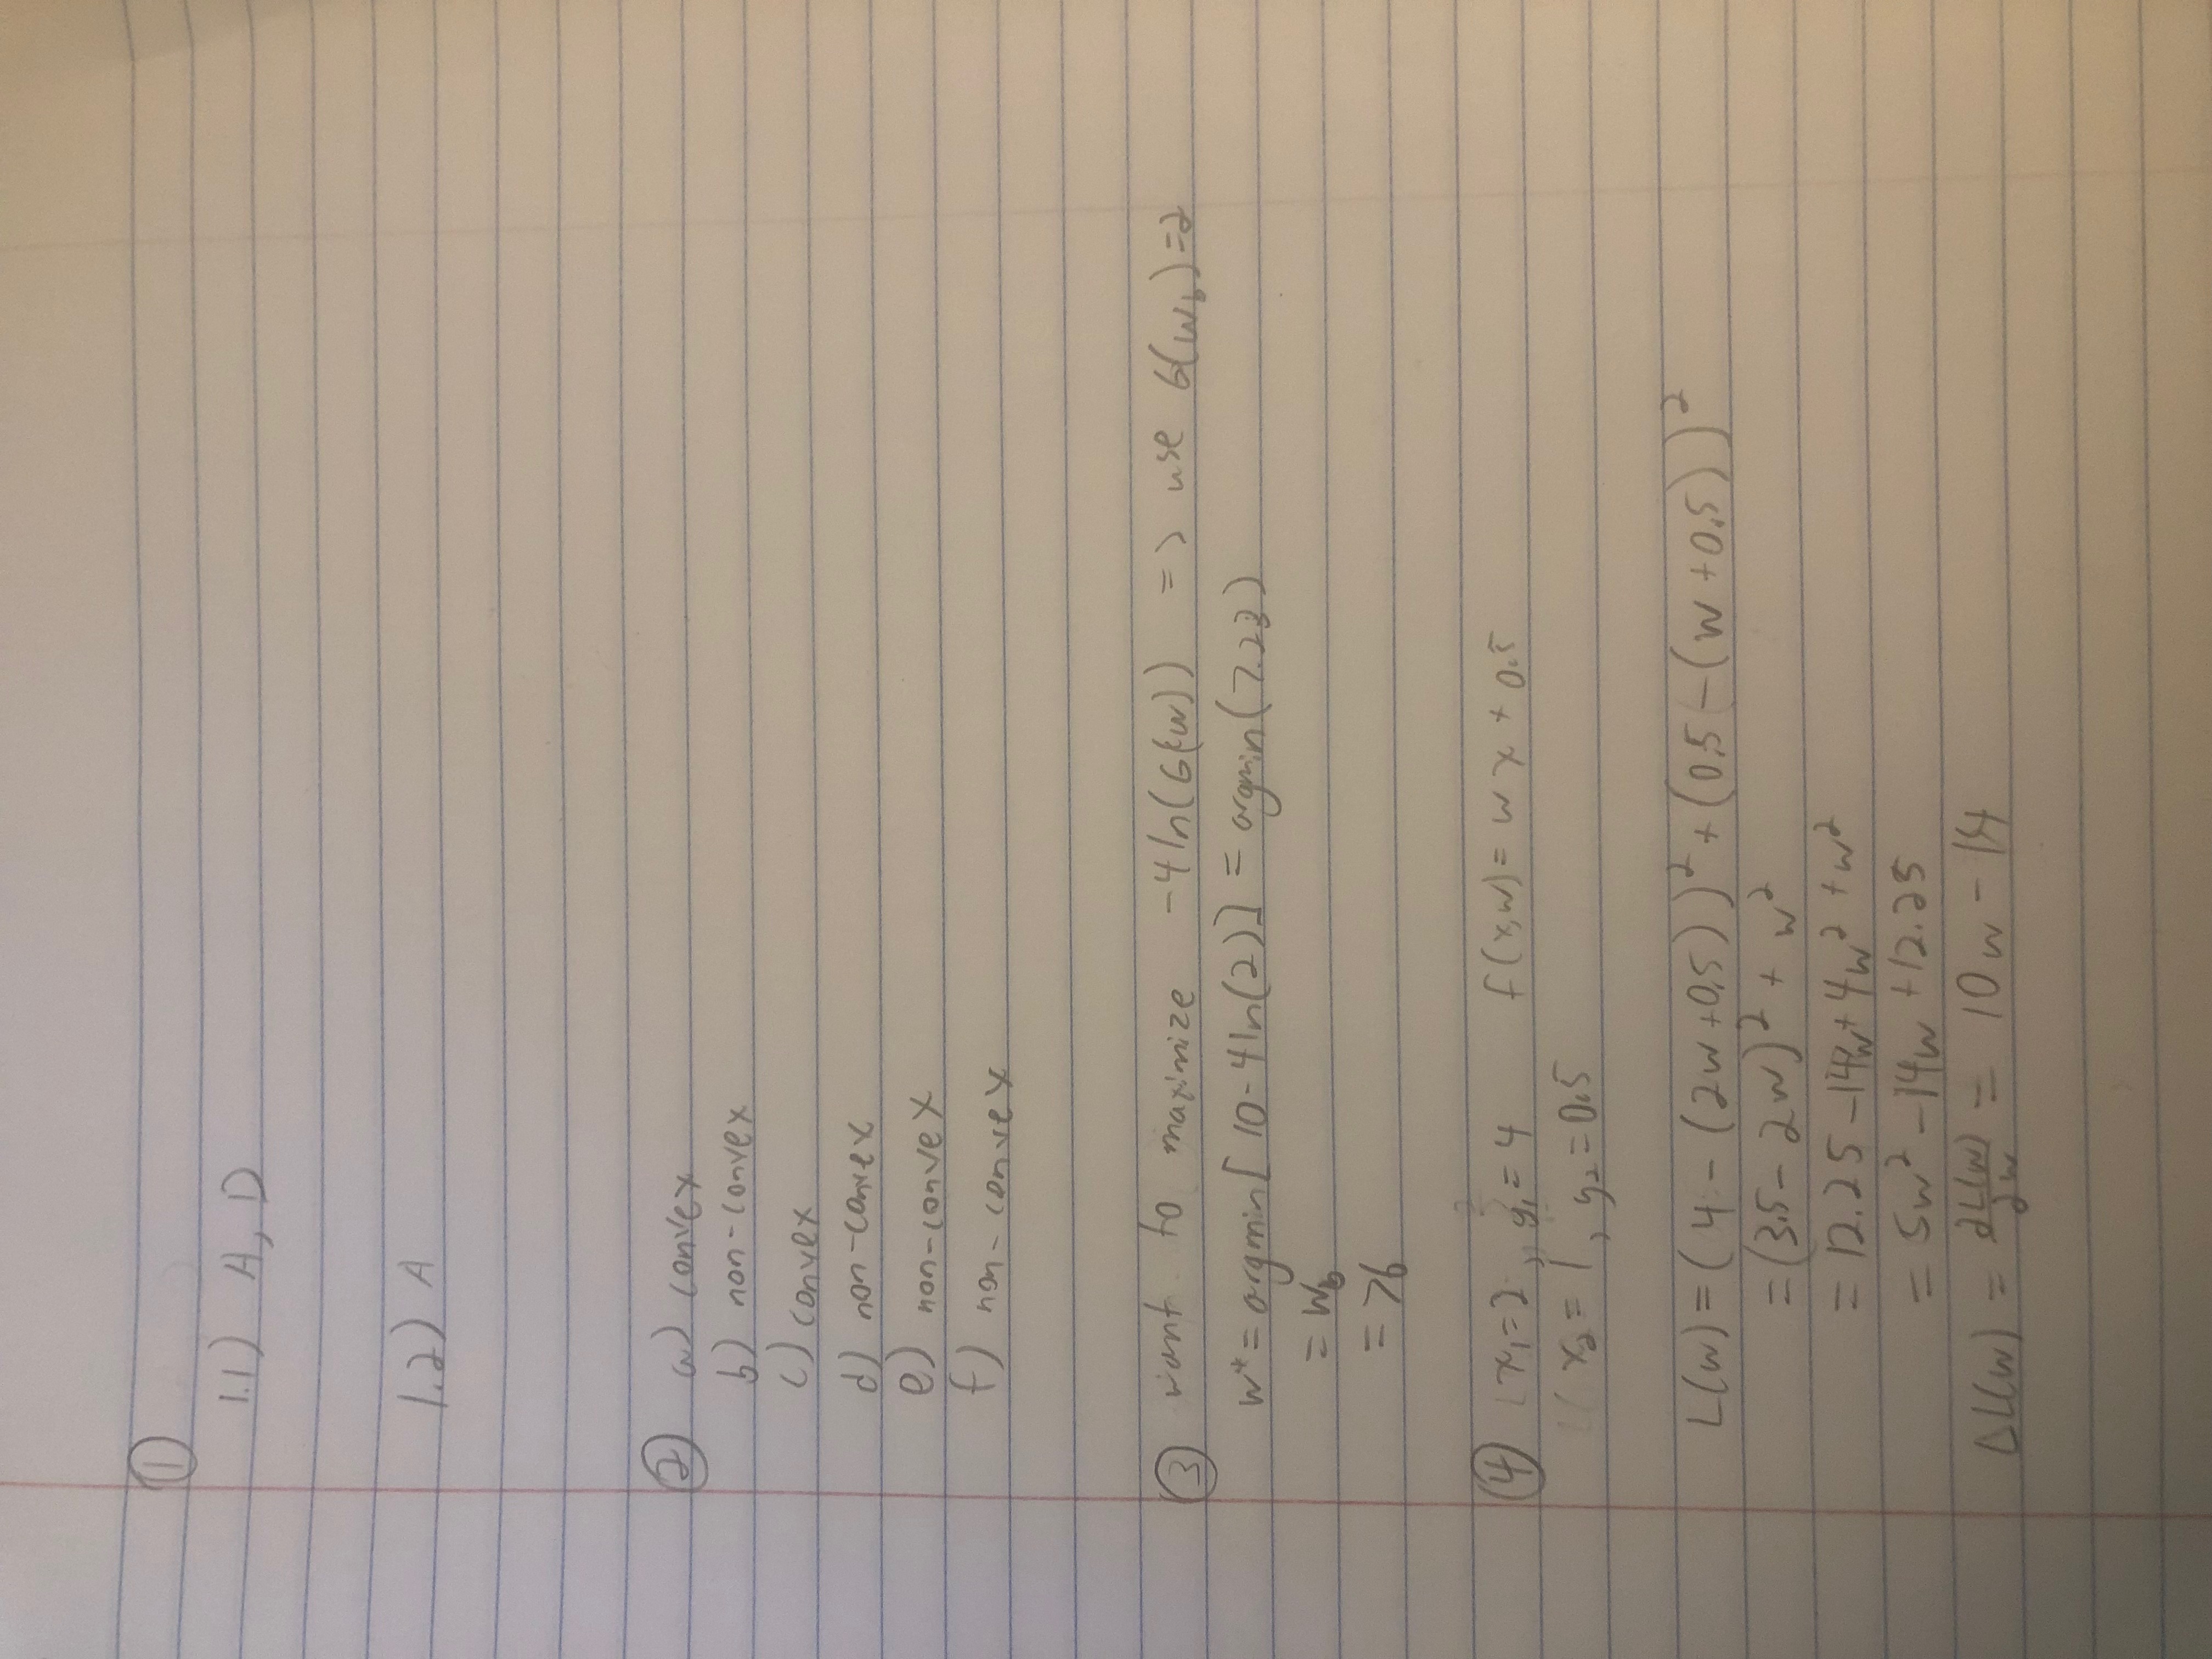 ①
1.1) A, D
1.2) A
② a) convex
b) non-convex
c) convex
d) non-convex
e) non-convex
f) non-convex
③ want to maximize -4ln(G(w)) => use G(w_b)=2
w* = argmin[10-4ln(2)] = argmin(7.23)
= w_b
= 76
④ x₁=2, y₁=4 f(x,w)= wx + 0.5
x₂=1, y₂=0.5
L(w)=(4-(2w+0.5))² + (0.5-(w+0.5))²
=(3.5-2w)² + w²
= 12.25 -14w+4w² +w²
= 5w² -14w +12.25
ΔL(w) = ∂L(w)/∂w = 10w - 14